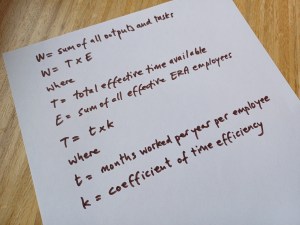 W = sum of all outputs and tasks
W = T x E
where
T = total effective time available
E = sum of all effective ERA employees
T = t x k
where
t = months worked per year per employee
k = coefficient of time efficiency